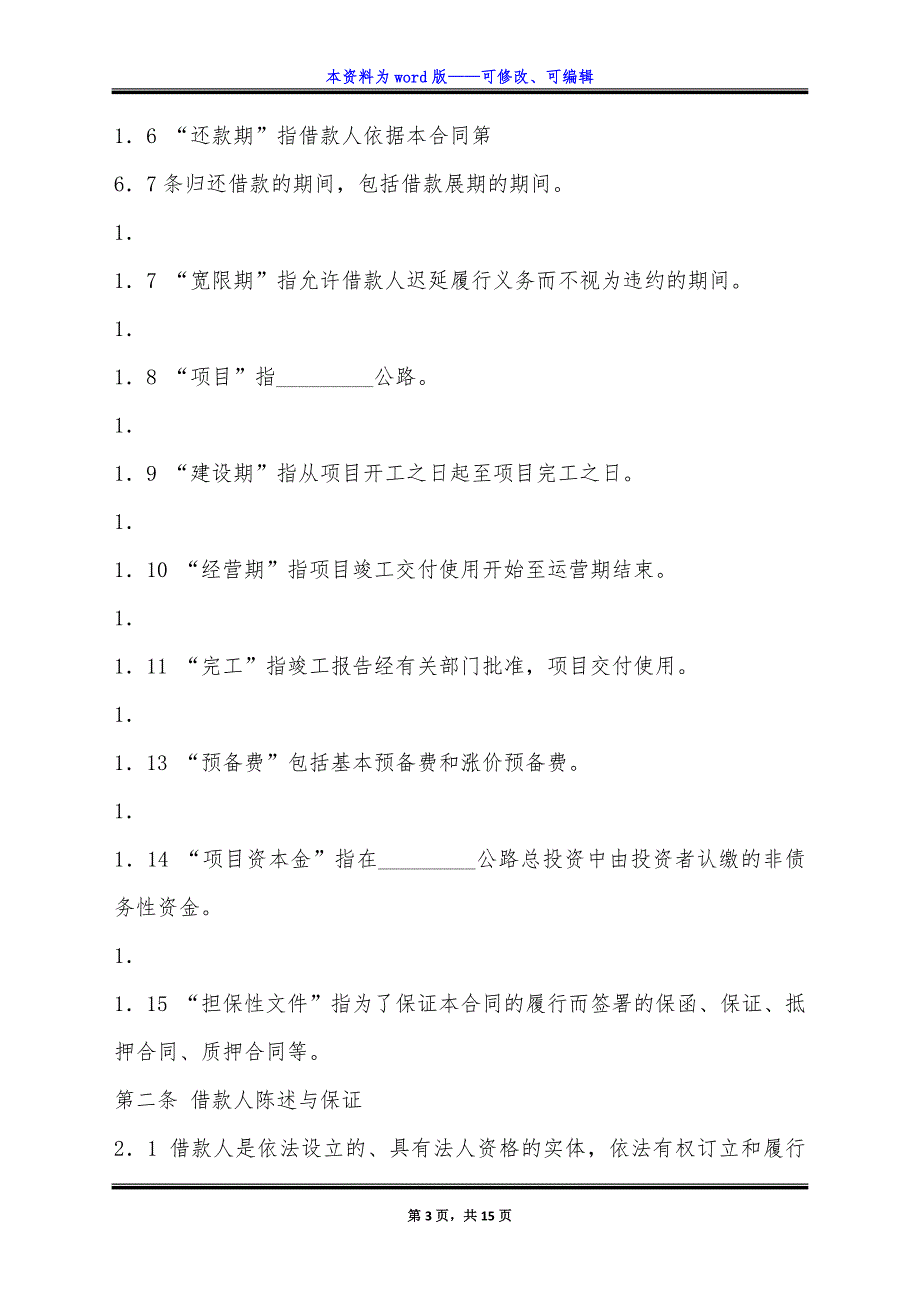 本资料为 word 版——可修改、可编辑
1．6 “还款期”指借款人依据本合同第
6．7条归还借款的期间，包括借款展期的期间。
1．
1．7 “宽限期”指允许借款人迟延履行义务而不视为违约的期间。
1．
1．8 “项目”指_________公路。
1．
1．9 “建设期”指从项目开工之日起至项目完工之日。
1．
1．10 “经营期”指项目竣工交付使用开始至运营期结束。
1．
1．11 “完工”指竣工报告经有关部门批准，项目交付使用。
1．
1．13 “预备费”包括基本预备费和涨价预备费。
1．
1．14 “项目资本金”指在_________公路总投资中由投资者认缴的非债
务性资金。
1．
1．15 “担保性文件”指为了保证本合同的履行而签署的保函、保证、抵
押合同、质押合同等。
第二条 借款人陈述与保证
2．1 借款人是依法设立的、具有法人资格的实体，依法有权订立和履行
第 3 页，共 15 页